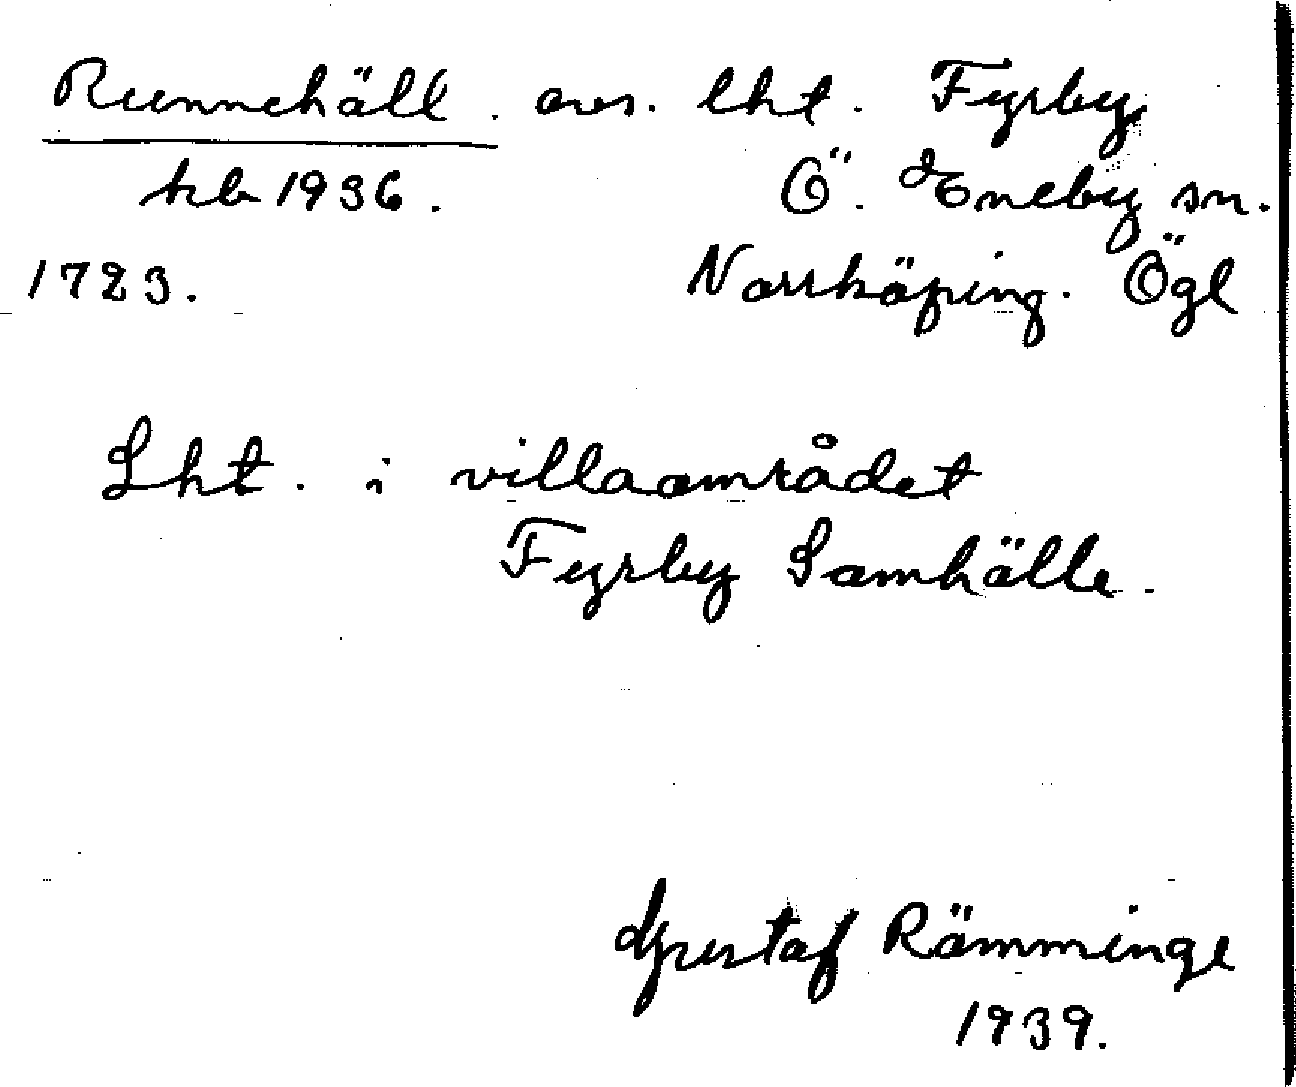 Runnehäll. avs. lht. Fyrby
kb 1936. Ö. Eneby sn.
1723. Norrköping. Ögl
Lht. i villaområdet
Fyrby Samhälle.
Gustaf Rämminge
1939.